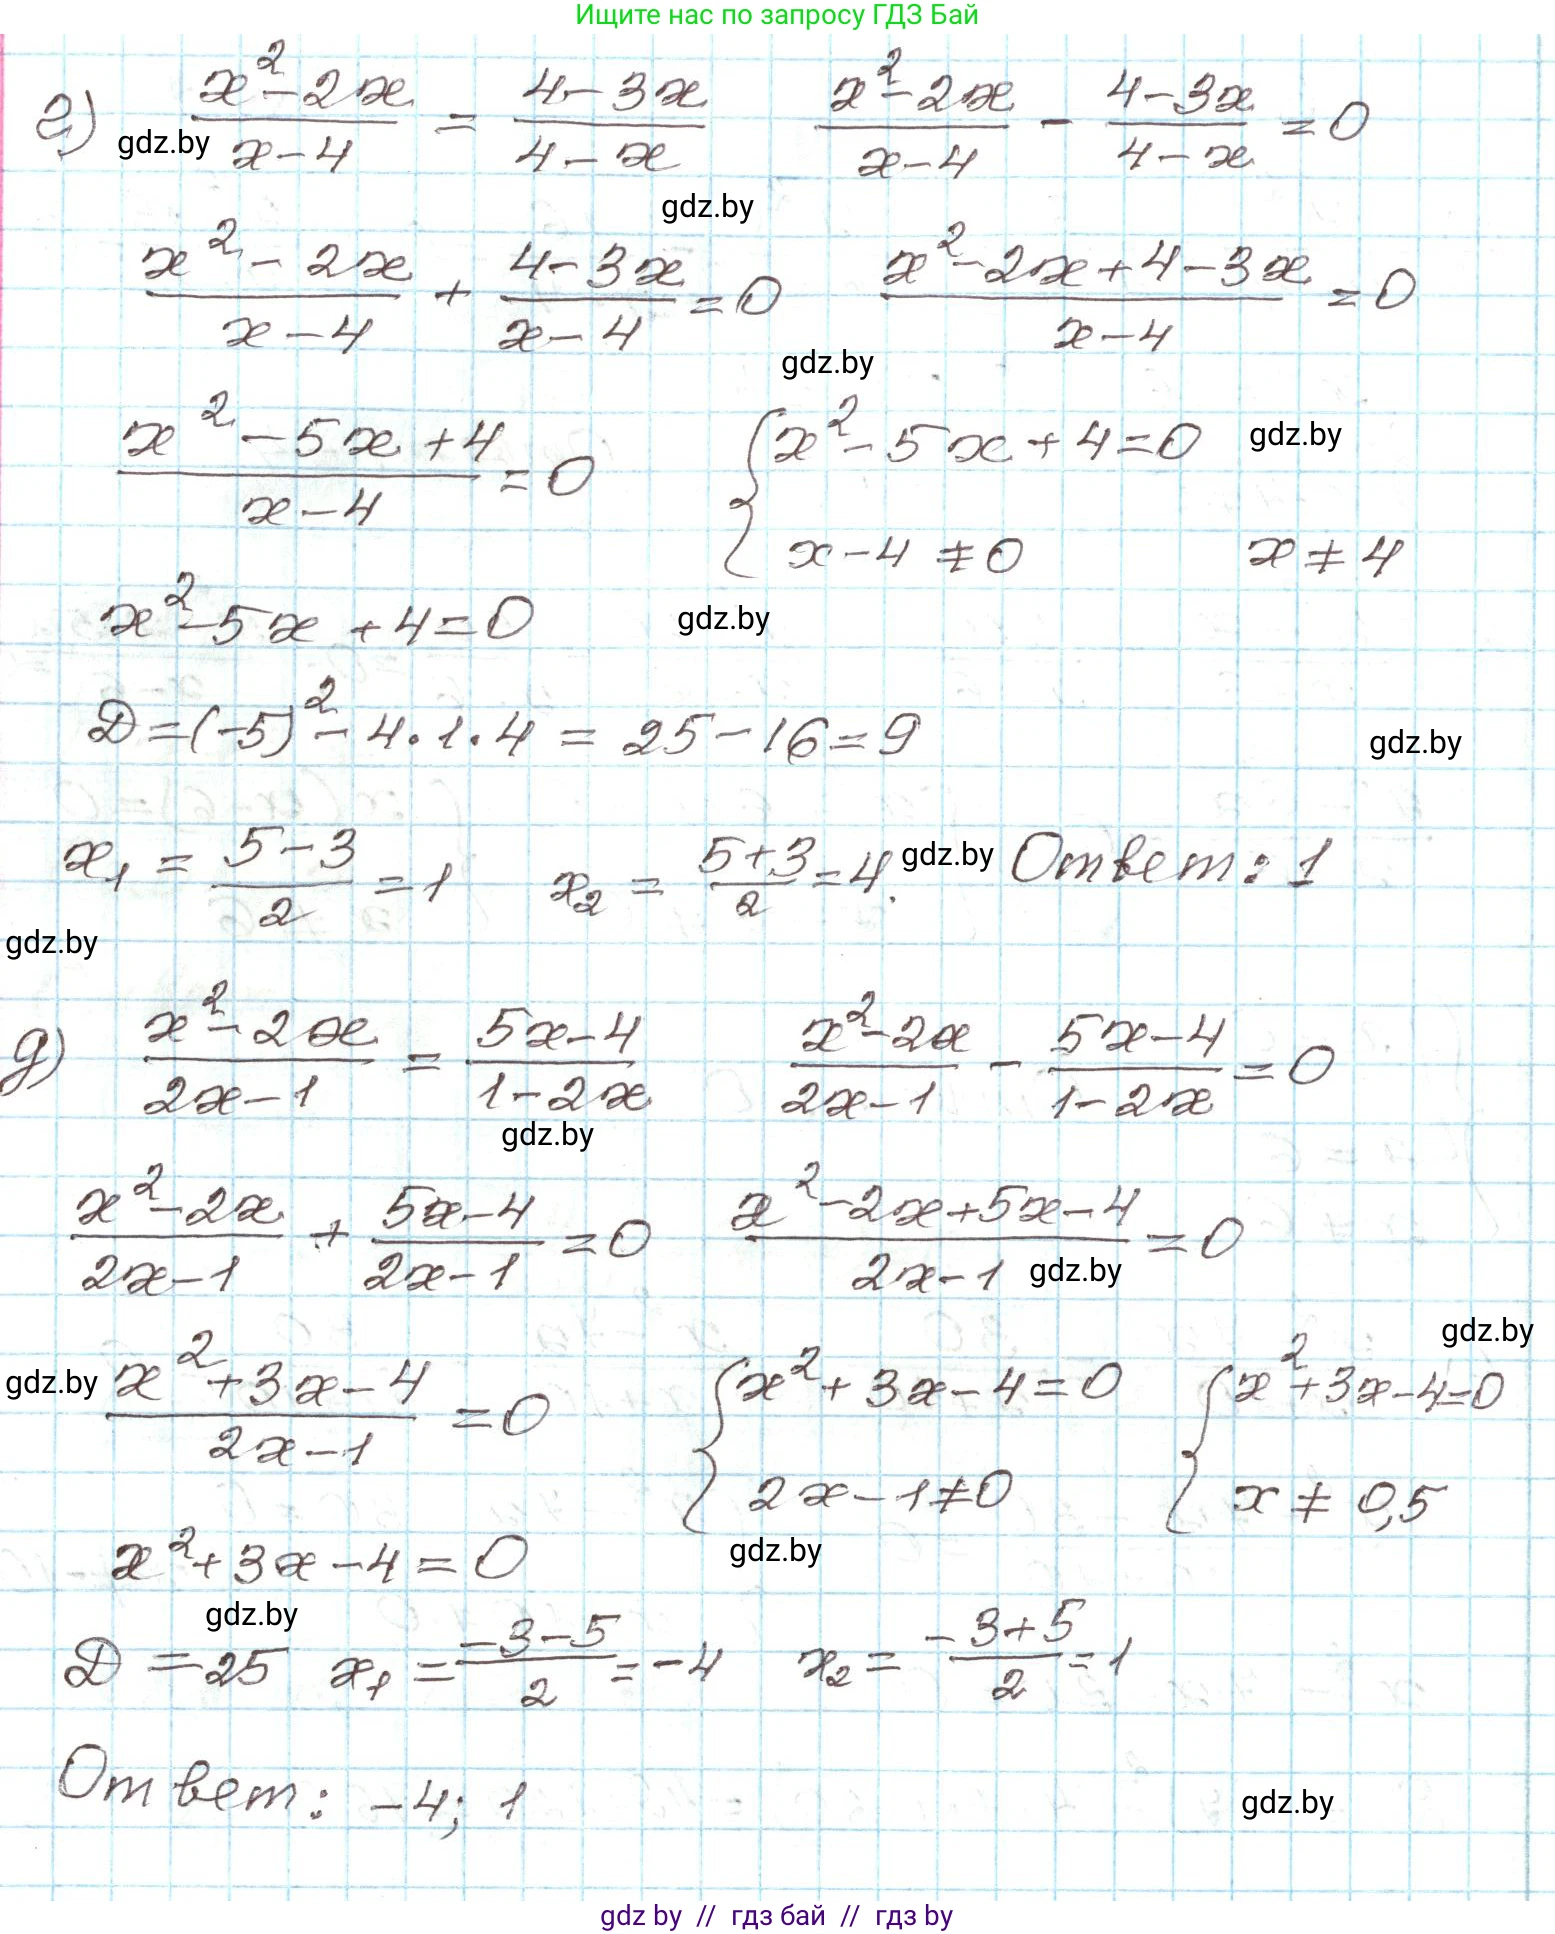 Ищите нас по запросу ГДЗ Бай
г) (x² - 2x)/(x - 4) = (4 - 3x)/(4 - x)   (x² - 2x)/(x - 4) - (4 - 3x)/(4 - x) = 0
gdz.by
gdz.by
(x² - 2x)/(x - 4) + (4 - 3x)/(x - 4) = 0   (x² - 2x + 4 - 3x)/(x - 4) = 0
gdz.by
(x² - 5x + 4)/(x - 4) = 0   { x² - 5x + 4 = 0   gdz.by
x - 4 ≠ 0   x ≠ 4
x² - 5x + 4 = 0   gdz.by
D = (-5)² - 4·1·4 = 25 - 16 = 9   gdz.by
x₁ = (5 - 3)/2 = 1   x₂ = (5 + 3)/2 = 4.   gdz.by   Ответ: 1
gdz.by
д) (x² - 2x)/(2x - 1) = (5x - 4)/(1 - 2x)   (x² - 2x)/(2x - 1) - (5x - 4)/(1 - 2x) = 0
gdz.by
(x² - 2x)/(2x - 1) + (5x - 4)/(2x - 1) = 0   (x² - 2x + 5x - 4)/(2x - 1) = 0
gdz.by
gdz.by
gdz.by   (x² + 3x - 4)/(2x - 1) = 0   { x² + 3x - 4 = 0   { x² + 3x - 4 = 0
2x - 1 ≠ 0   x ≠ 0,5
x² + 3x - 4 = 0   gdz.by
gdz.by
D = 25   x₁ = (-3 - 5)/2 = -4   x₂ = (-3 + 5)/2 = 1
Ответ: -4; 1   gdz.by
gdz by // гдз бай // gdz by